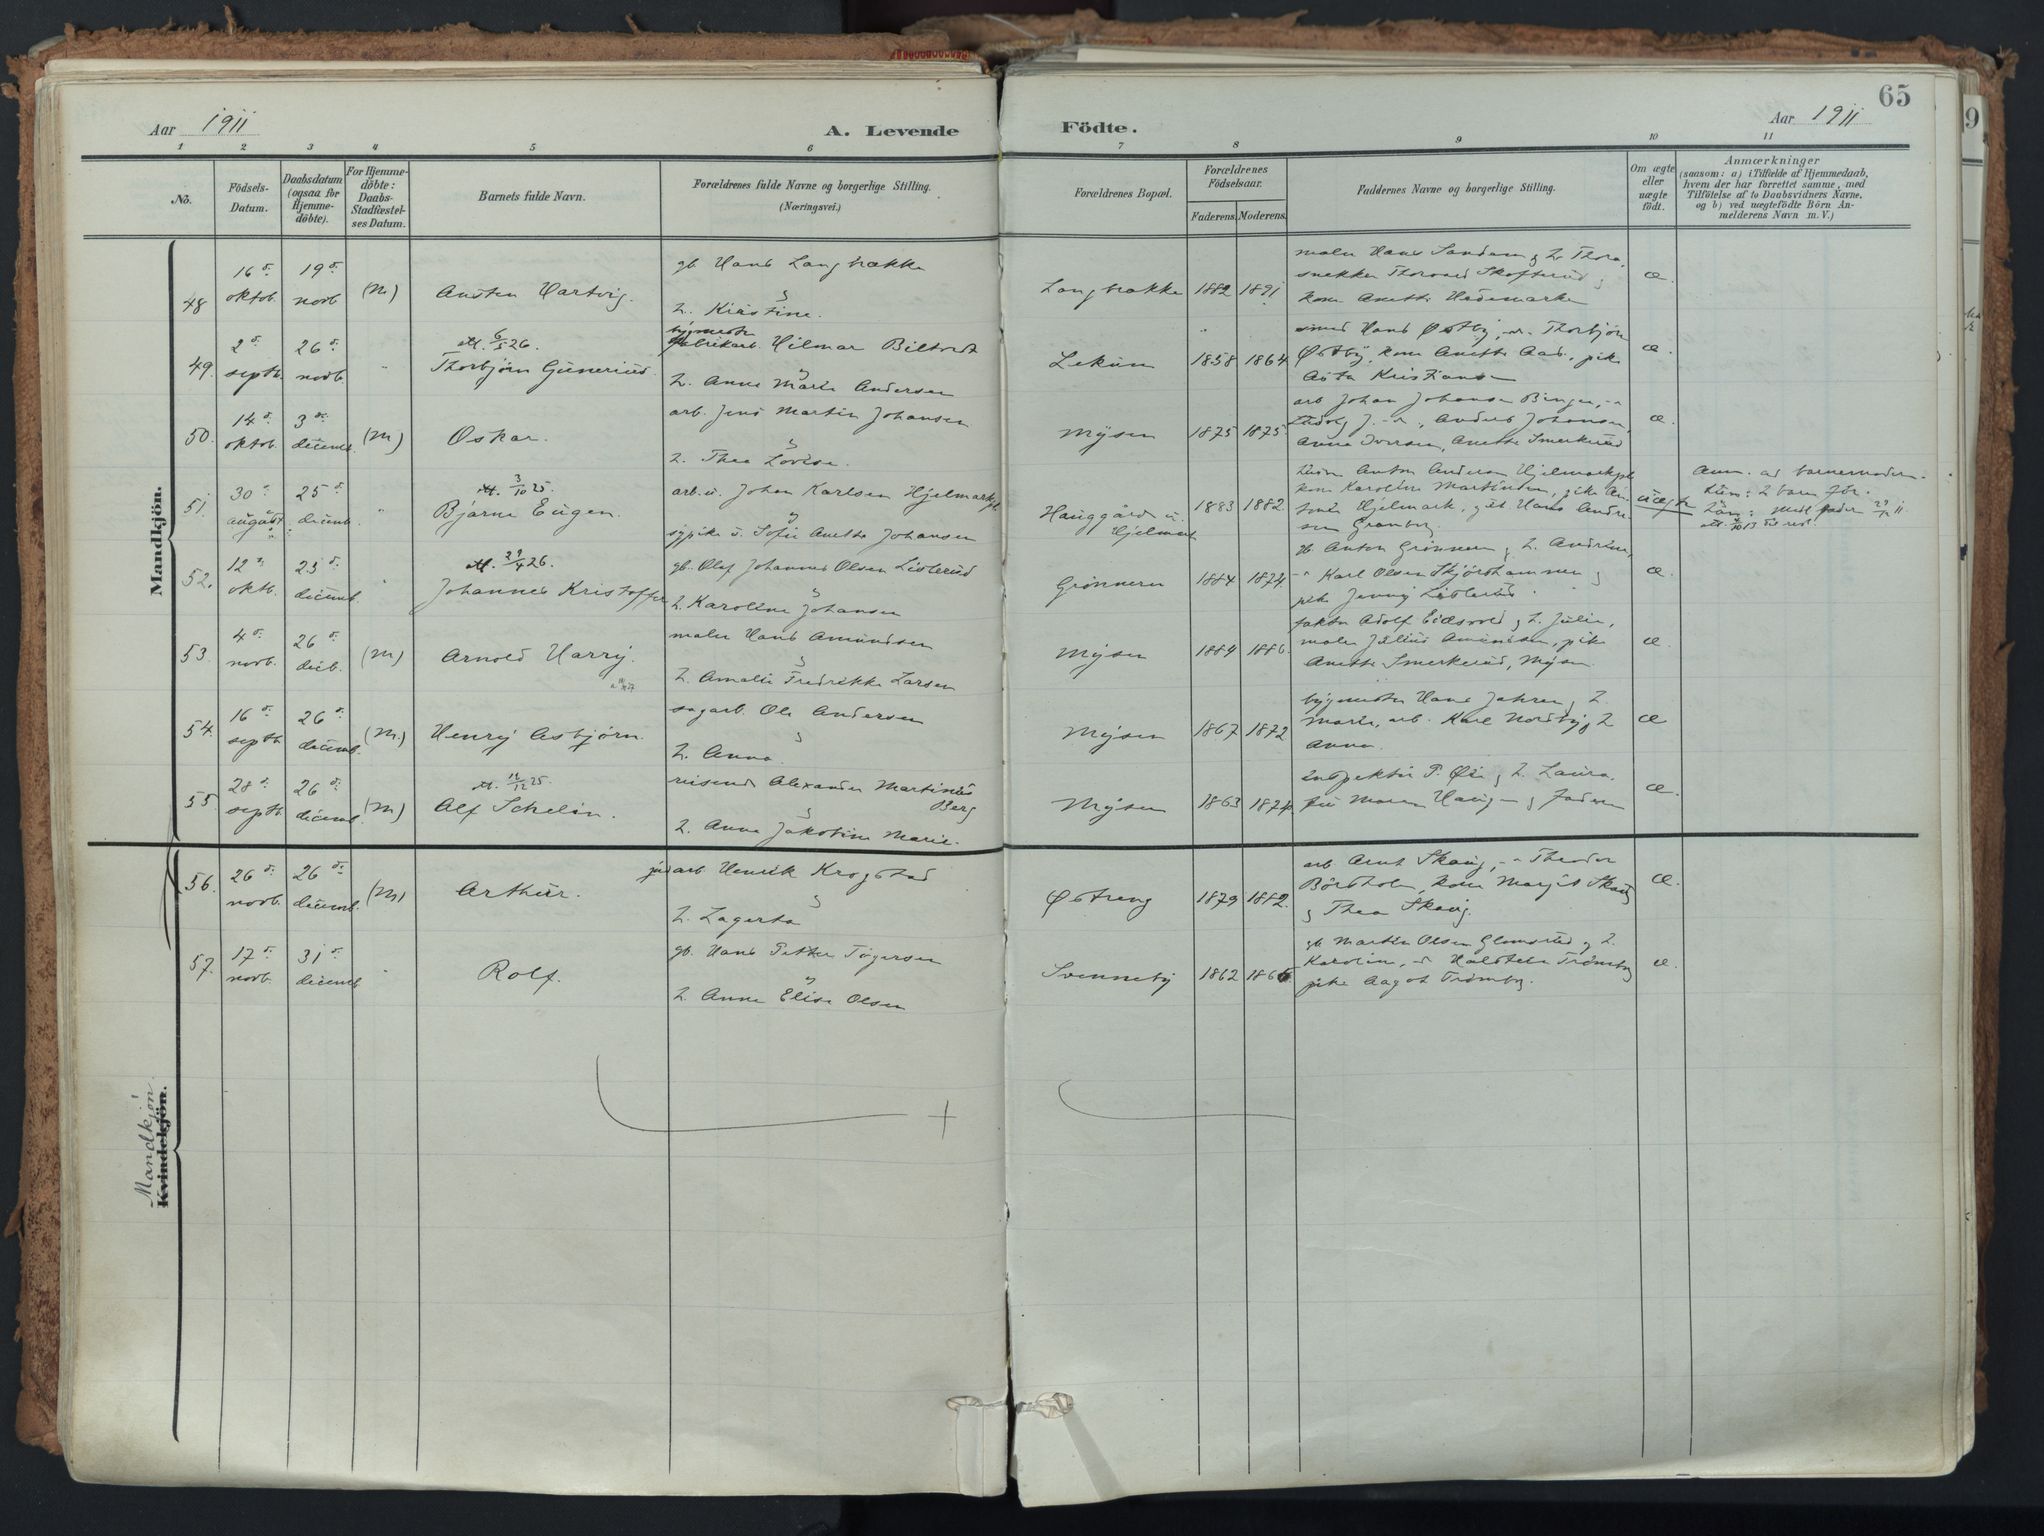 65
Aar 1911
A. Levende
Födte.
Aar 1911
1 2 3 4 5 6 7 8 9 10 11
No.
Födsels-
Datum.
Daabsdatum
(ogsaa for
Hjemme-
döbte).
For Hjemme-
döbte:
Daabs-
Stadfæstel-
ses Datum.
Barnets fulde Navn.
Forældrenes fulde Navne og borgerlige Stilling.
(Næringsvei.)
Forældrenes Bopæl.
Forældrenes
Födselsaar.
Faderens. Moderens.
Faddernes Navne og borgerlige Stilling.
Om ægte
eller
uægte
födt.
Anmærkninger
(saasom: a) i Tilfælde af Hjemmedaab,
hvem der har forrettet samme, med
Tilföielse af to Daabsvidners Navne,
og b) ved uægtefödte Börn An-
melderens Navn m. V.)
Mandkjön.
48
16 d. oktob.
19 d. novb
(M)
Austen Hartvig.
gb. Hans Langbrække
&
h. Kirstine.
Langbrække
1882 1891
maler Hans Sandem & h. Thora,
snekker Thorvald Skofterud &
kone Anette Hedemarken
æ.
49.
2 d. septb.
26 d. novb.
"
att. 6/5 26.
Thorbjørn Gunerius
bygmester
fabrikarb. Hilmar Biltvedt
&
h. Anne Marie Andersen
Lekum
1858 1864
smed Hans Østby, Thorbjørn
Østby, kone Anette Aas, pike
Asta Kristiansen
æ.
50.
14 d. oktob.
3 de decemb.
(M)
Oskar.
arb. Jens Martin Johansen
&
h. Thea Lovise.
Mysen
1875 1875.
arb Johan Johansen Bingen, -"-
Ludvig J. , Anders Johansen,
Anna Iversen, Anette Smerkerud
æ.
51.
30 d. august
25 d. decemb.
"
att. 3/10 25.
Bjarne Eugen.
arb. u. Johan Karlsen Hjelmarkpl.
&
sypike u. Sofie Anette Johansen
Hauggård u.
Hjelmark
1883 1882.
Anton Andersen Hjelmarkpl
kone Karoline Martinsen, pike
Hjelmark, Hans Andersen
Granberg
uægte
Anm. ad barnemoderen.
2 barn før.
52.
12 d. oktb.
25 d. decemb.
"
att. 29/4 26.
Johannes Kristoffer
gb. Olaf Johannes Olsen Listerud
&
h. Karoline Johansen
Grønnern
1884 1874.
gb. Anton Grønnern & h. Andrine,
-"- Karl Olsen Skjørshammer &
pike Jenny Listerud.
æ.
53.
4 d. novb.
26 d. decb.
(M)
Arnold Harry.
maler Hans Amundsen
&
h. Amalie Fredrikke Larsen
Mysen
1884 1886.
faktor Adolf Eidsvold & h. Julie,
maler Julius Amundsen, pike
Anette Smerkerud, Mysen
æ
54.
16 d. septb
26 d. decemb.
(M.)
Henry Asbjørn.
sagarb. Ole Andersen
&
h. Anna.
Mysen
1867 1872
bygmester Hans Jahren & h
Marie, arb. Karl Nordby & h
Anna.
æ
55.
28 d. septb.
26 d. decemb.
(M)
att. 12/12 25.
Alf Schelin.
reisende Alexander Martinius
Berg
&
h. Anna Jakobine Marie.
Mysen
1863 1874.
inspektør P. Øie & h. Laura.
fru Maren Haugen & faderen
æ.
56.
26 d. novb.
26 de decemb.
(M)
Arthur.
jordarb Henrik Krogstad
&
h. Lagerta
Østreng
1879 1882.
arb. Arnt Skaug, -"- Theodor
Børsholm, kone Margit Skaug
& Thea Skaug.
æ.
57.
17 d. novb.
31 d. decemb
"
Rolf.
gb. Hans Petter Tøgersen
&
h. Anne Elise Olsen
Svenneby
1862 1866
gb Martin Olsen Glomsrud & h.
Karoline, Halstein Trømborg
pike Aagot Trømborg.
æ.
Mandkjön!
Kvindekjön.